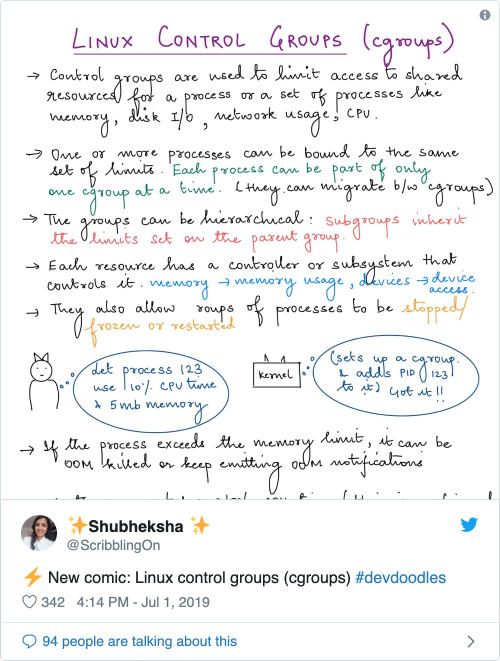 LINUX CONTROL GROUPS (cgroups)
→ Control groups are used to limit access to shared
resources for a process or a set of processes like
memory, disk I/O, network usage, CPU.
→ One or more processes can be bound to the same
set of limits. Each process can be part of only
one cgroup at a time. (they can migrate b/w cgroups)
→ The groups can be hierarchical: subgroups inherit
the limits set on the parent group.
→ Each resource has a controller or subsystem that
controls it. memory → memory usage, devices → device
access.
→ They also allow roups of processes to be stopped/
frozen or restarted
let process 123
use 10% CPU time
& 5mb memory
kernel
(sets up a cgroup
& adds PID 123
to it) Got it!!
→ If the process exceeds the memory limit, it can be
OOM killed or keep emitting OOM notifications
✨Shubheksha ✨
@ScribblingOn
⚡ New comic: Linux control groups (cgroups) #devdoodles
342 4:14 PM - Jul 1, 2019
94 people are talking about this